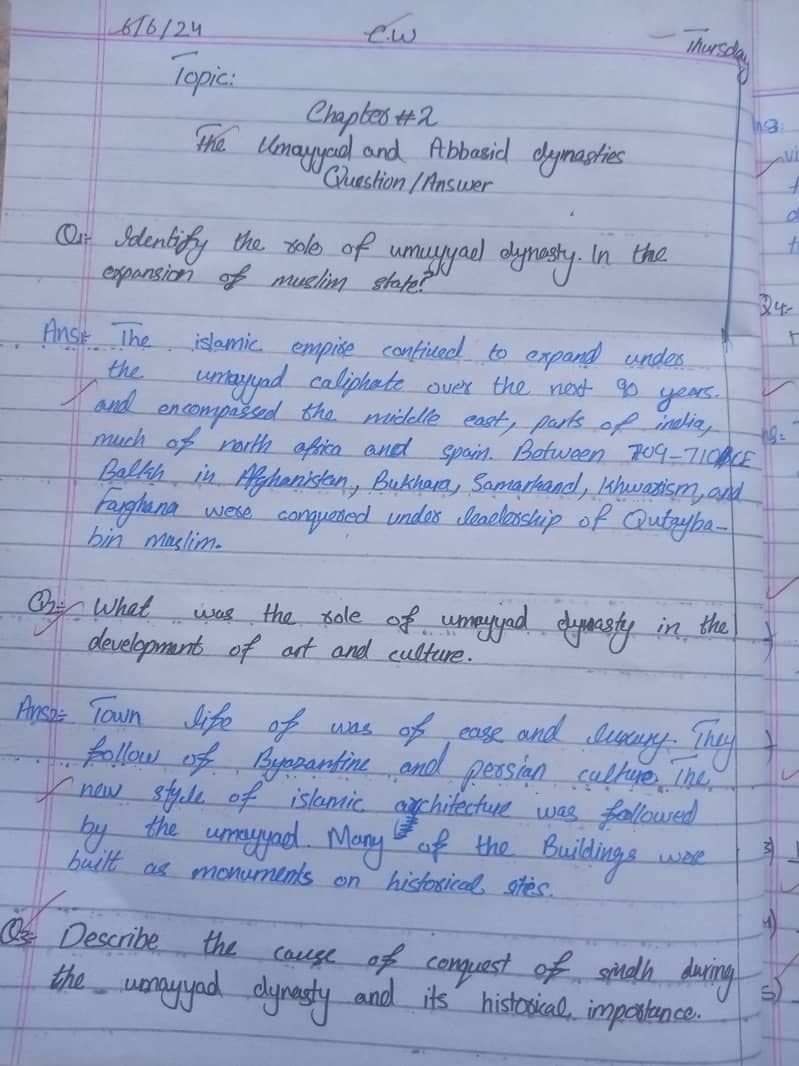 6/6/24 C.W Thursday
Topic:
Chapter #2
The Umayyad and Abbasid dynasties
Question/Answer
Q1= Identify the role of umuyyad dynasty. In the
expansion of muslim state?
Ans= The islamic empire contiued to expand under
the umayyad caliphate over the next 90 years.
and encompassed the middle east, parts of india,
much of north africa and spain. Between 709-710 CE
Balkh in Afghanistan, Bukhara, Samarhand, Khwarism, and
Farghana were conquered under leadership of Qutayba-
bin muslim.
Q2= What was the role of umayyad dynasty in the
development of art and culture.
Ans2= Town life of was of ease and luxury. They
follow of Byazantine and persian culture. The
new style of islamic architecture was followed
by the umayyad. Many of the Buildings were
built as monuments on historical sties.
Q3= Describe the cause of conquest of sindh during
the umayyad dynasty and its historical importance.
ns3:
Q4:-
3)
4)
5)